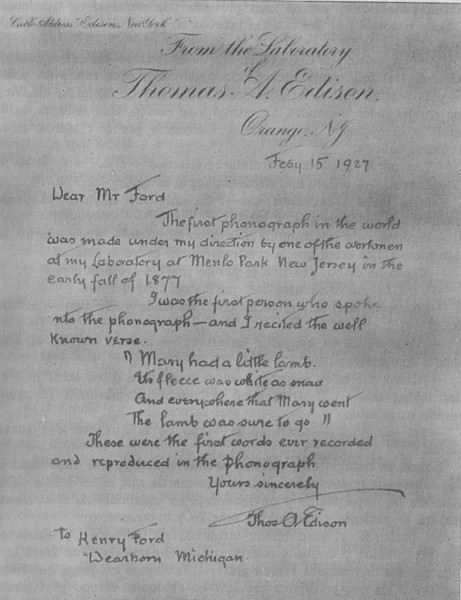 Cable Address "Edison, New York"
From the Laboratory
of
Thomas A. Edison,
Orange, N.J.
Feby 15 1927
Dear Mr Ford
The first phonograph in the world
was made under my direction by one of the workmen
at my Laboratory at Menlo Park New Jersey in the
early fall of 1877
I was the first person who spoke
nto the phonograph—and I recited the well
known verse.
" Mary had a little lamb.
Its fleece was white as snow
And everywhere that Mary went
The lamb was sure to go "
These were the first words ever recorded
and reproduced in the phonograph
Yours sincerely
Thos A Edison
To Henry Ford
Dearborn Michigan